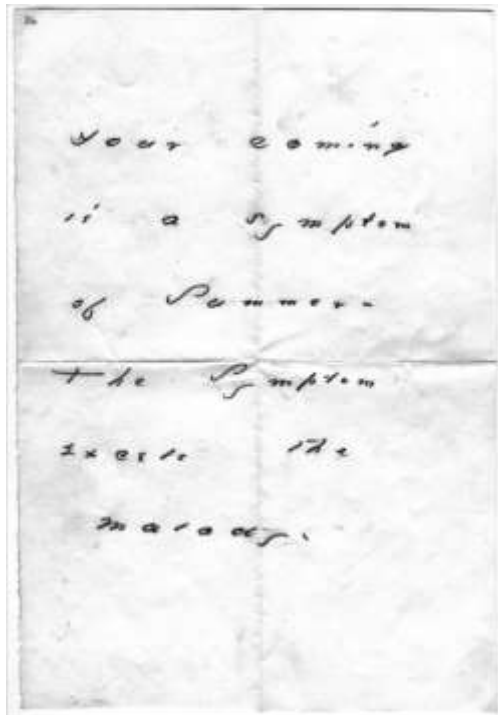 Your coming
is a symptom
of Summer -
The Symptom
excels the
malady.